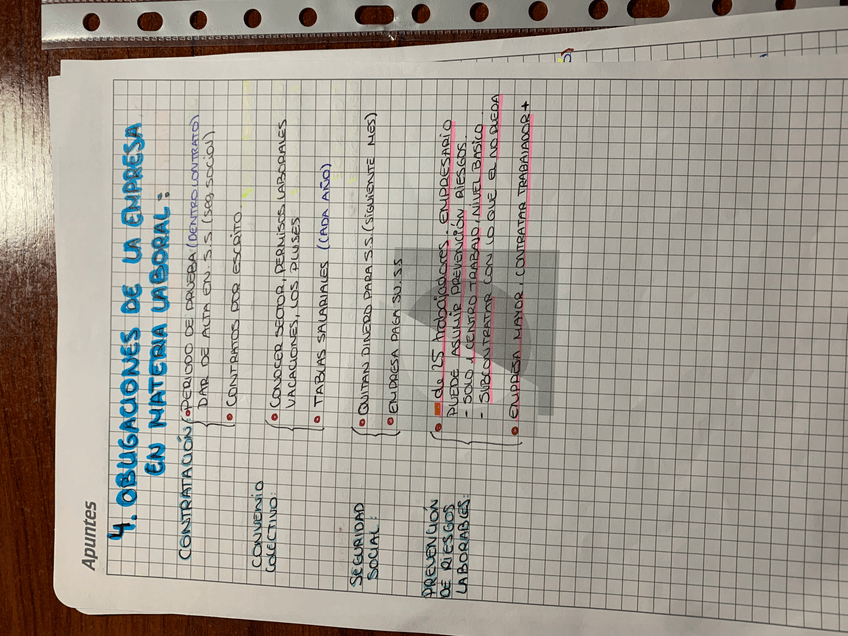 Apuntes
4. OBLIGACIONES DE LA EMPRESA
EN MATERIA LABORAL:
CONTRATACIÓN
PERIODO DE PRUEBA (DENTRO CONTRATO)
DAR DE ALTA EN S.S. (SEG SOCIAL)
CONTRATOS POR ESCRITO.
CONVENIO
COLECTIVO:
CONOCER SECTOR, PERMISOS LABORALES
VACACIONES, LOS PLUSES
TABLAS SALARIALES (CADA AÑO)
SEGURIDAD
SOCIAL:
QUITAN DINERO PARA S.S. (SIGUIENTE MES)
EMPRESA PAGA SU. SS
PREVENCIÓN
DE RIESGOS
LABORABLES:
- de 25 trabajadores. EMPRESARIO
PUEDE ASUMIR PREVENCIÓN RIESGOS.
- SOLO 1 CENTRO TRABAJO, NIVEL BASICO
- SUBCONTRATAR CON LO QUE EL NO PUEDA
EMPRESA MAYOR, CONTRATAR TRABAJADOR +